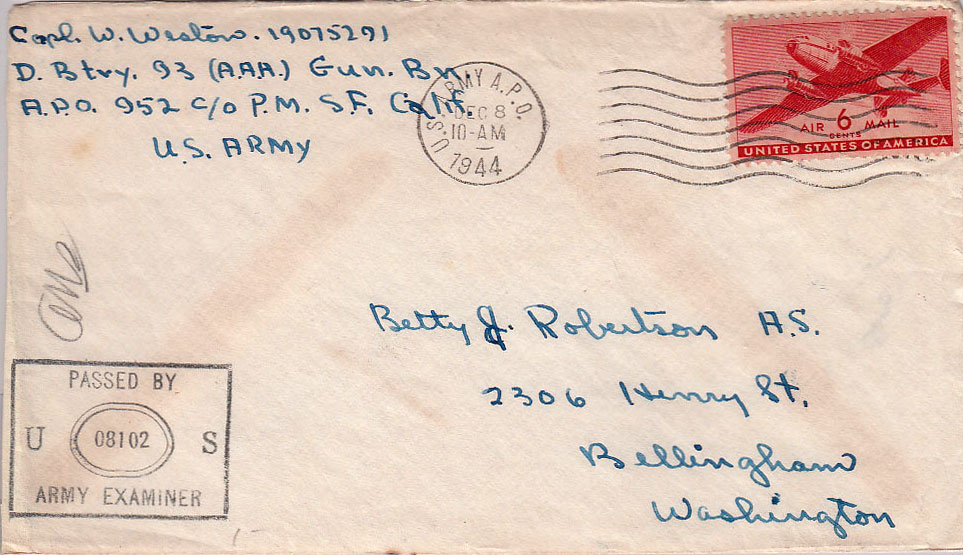 Copl. W. Weslow. 19075291
D. Btry. 93 (A.A.A.) Gun. Bn.
A.P.O. 952 c/o P.M. S.F. Calif.
U.S. ARMY
U.S. ARMY A.P.O.
DEC 8
10-AM
1944
AIR 6 MAIL
CENTS
UNITED STATES OF AMERICA
Betty J. Robertson A.S.
2306 Henry St.
Bellingham
Washington
PASSED BY
U 08102 S
ARMY EXAMINER